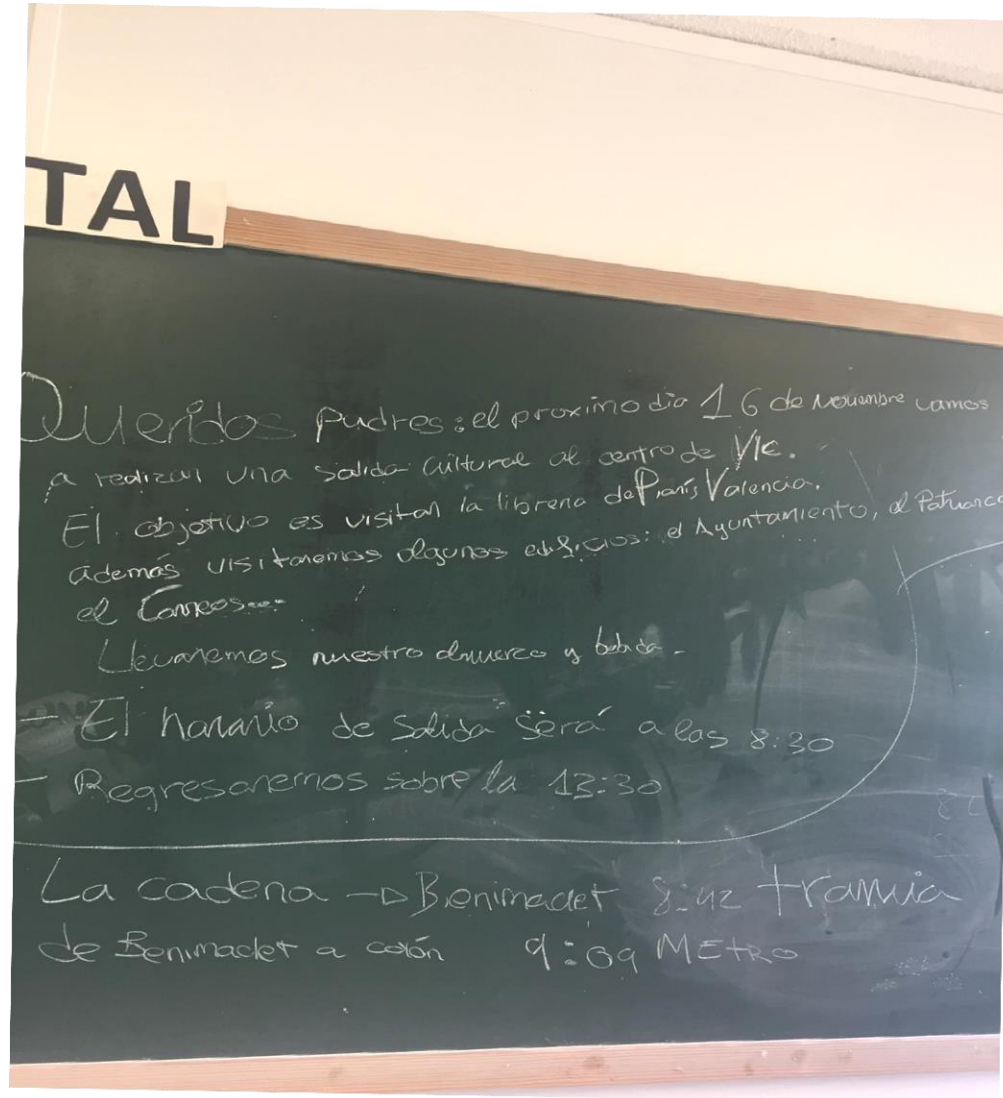 TAL
Queridos padres: el proximo dia 16 de Novembre vamos
a realizar una salida cultural al centro de Vlc.
El objetivo es visitar la libreria de París Valencia.
además visitaremos algunos edificios: el Ayuntamiento, el Patriarca
el Correos...
Llevaremos nuestro almuerzo y bebida.
- El horario de salida será a las 8:30
- Regresaremos sobre la 13:30
La cadena → Benimaclet 8:42 tramvia
de Benimaclet a colón 9:09 METRO